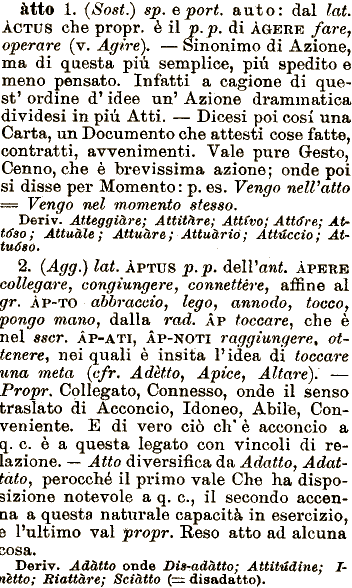 àtto 1. (Sost.) sp. e port. auto: dal lat.
ÀCTUS che propr. è il p. p. di ÀGERE fare,
operare (v. Agire). — Sinonimo di Azione,
ma di questa piú semplice, piú spedito e
meno pensato. Infatti a cagione di que-
st' ordine d' idee un' Azione drammatica
dividesi in piú Atti. — Dicesi poi cosí una
Carta, un Documento che attesti cose fatte,
contratti, avvenimenti. Vale pure Gesto,
Cenno, che è brevissima azione; onde poi
si disse per Momento: p. es. Vengo nell'atto
= Vengo nel momento stesso.
Deriv. Atteggiàre; Attitàre; Attívo; Attóre; At-
tóso; Attuàle; Attuàre; Attuàrio; Attúccio; At-
tuóso.
2. (Agg.) lat. ÀPTUS p. p. dell'ant. ÀPERE
collegare, congiungere, connettère, affine al
gr. ÀP-TO abbraccio, lego, annodo, tocco,
pongo mano, dalla rad. ÂP toccare, che è
nel sscr. ÂP-ATI, ÂP-NOTI raggiungere, ot-
tenere, nei quali è insita l'idea di toccare
una meta (cfr. Adètto, Apice, Altare). —
Propr. Collegato, Connesso, onde il senso
traslato di Acconcio, Idoneo, Abile, Con-
veniente. E di vero ciò ch' è acconcio a
q. c. è a questa legato con vincoli di re-
lazione. — Atto diversifica da Adatto, Adat-
tato, perocché il primo vale Che ha dispo-
sizione notevole a q. c., il secondo accen-
na a questa naturale capacità in esercizio,
e l'ultimo val propr. Reso atto ad alcuna
cosa.
Deriv. Adàtto onde Dis-adàtto; Attitúdine; I-
nètto; Riattàre; Sciàtto (= disadatto).